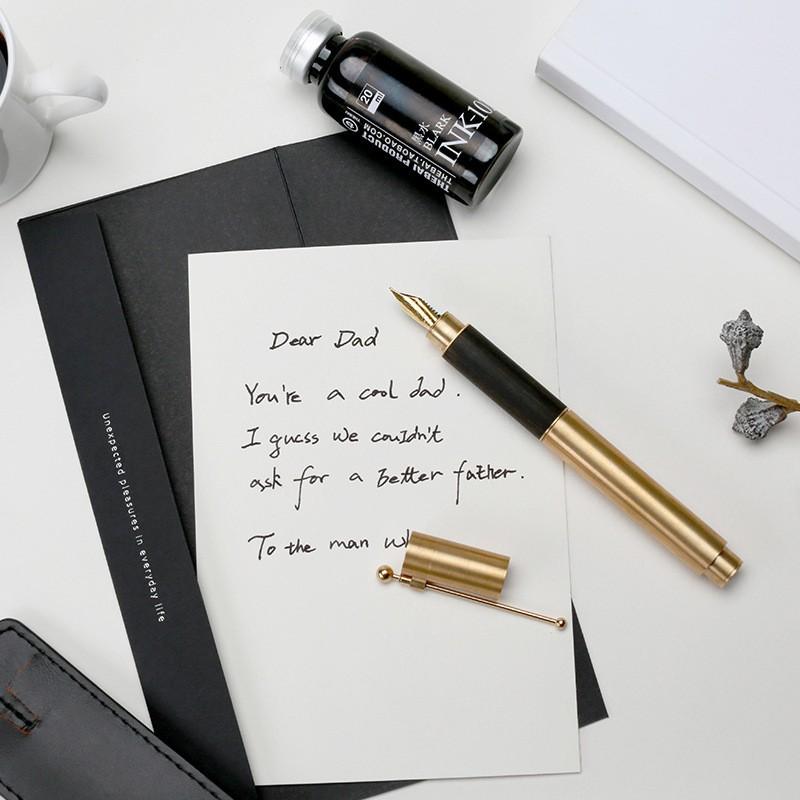 20
ml
黑水
BLARK
INK-10
THEBAI PRODUCT
THEBAI.TAOBAO.COM
Dear Dad
You're a cool dad.
I guess we couldn't
ask for a better father.
To the man
unexpected pleasures in everyday life